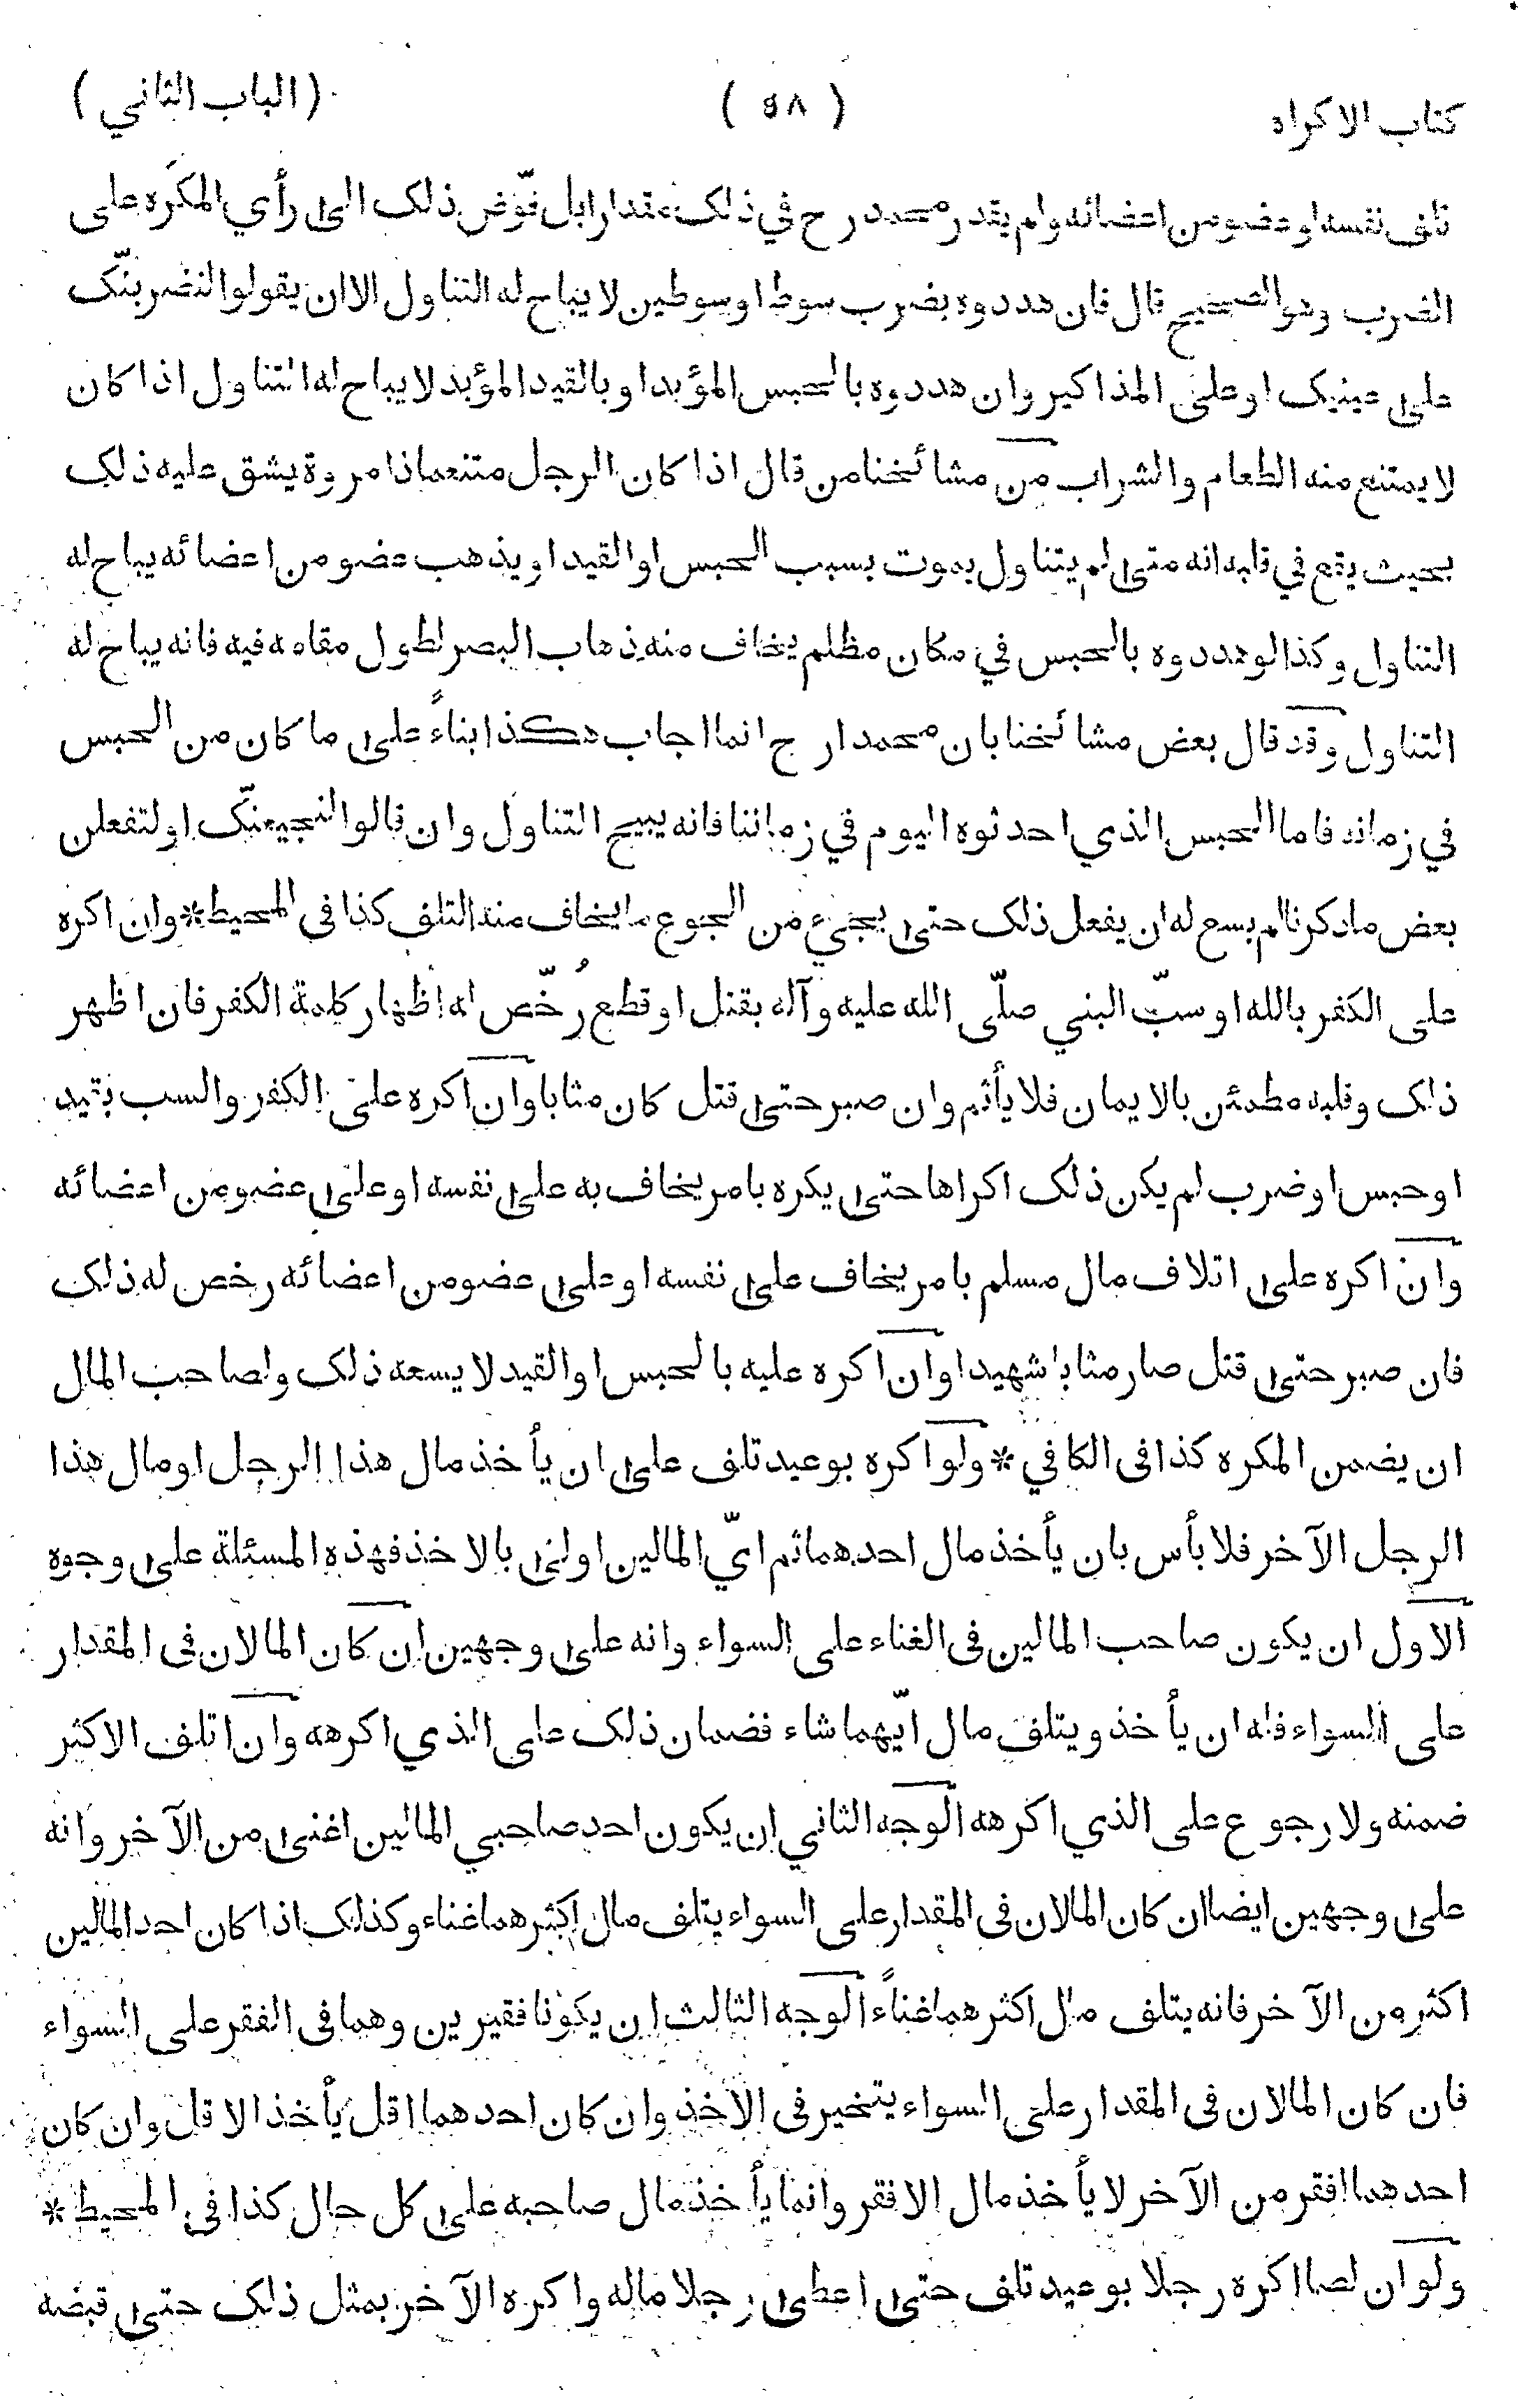 كتاب الاكراه ( ٥٨ ) ( الباب الثاني )
تلف نفسه او عضو من اعضائه ولم يقدر محمد رح في ذلك مقدارا بل فوّض ذلك الى رأي المكَره على
الضرب وهو الصحيح قال فان هددوه بضرب سوط او سوطين لا يباح له التناول الا ان يقولوا لنضربنّك
على عينيك او على المذاكير وان هددوه بالحبس المؤبد او بالقيد المؤبد لا يباح له التناول اذا كان
لا يمتنع منه الطعام والشراب من مشائخنا من قال اذا كان الرجل متنعما ذا مروة يشق عليه ذلك
بحيث يقع في قلبه انه متى لم يتناول يموت بسبب الحبس او القيد او يذهب عضو من اعضائه يباح له
التناول وكذا لو هددوه بالحبس في مكان مظلم يخاف منه ذهاب البصر لطول مقامه فيه فانه يباح له
التناول وقد قال بعض مشائخنا بان محمدا رح انما اجاب هكذا بناءً على ما كان من الحبس
في زمانه فاما الحبس الذي احدثوه اليوم في زماننا فانه يبيح التناول وان قالوا لنجيعنّك او لتفعلن
بعض ما ذكرنا لم يسع له ان يفعل ذلك حتى يجيء من الجوع ما يخاف منه التلف كذا في المحيط * وان اكره
على الكفر بالله او سبّ النبي صلّى الله عليه وآله بقتل او قطع رُخّص له اظهار كلمة الكفر فان اظهر
ذلك وقلبه مطمئن بالايمان فلا يأثم وان صبر حتى قتل كان مثابا وان اكره على الكفر والسب بقيد
او حبس او ضرب لم يكن ذلك اكراها حتى يكره بامر يخاف به على نفسه او على عضو من اعضائه
وان اكره على اتلاف مال مسلم بامر يخاف على نفسه او على عضو من اعضائه رخص له ذلك
فان صبر حتى قتل صار مثابا شهيدا وان اكره عليه بالحبس او القيد لا يسعه ذلك ولصاحب المال
ان يضمن المكره كذا في الكافي * ولو اكره بوعيد تلف على ان يأخذ مال هذا الرجل او مال هذا
الرجل الآخر فلا بأس بان يأخذ مال احدهما ثم ايّ المالين اولى بالاخذ فهذه المسئلة على وجوه
الاول ان يكون صاحب المالين في الغناء على السواء وانه على وجهين ان كان المالان في المقدار
على السواء فله ان يأخذ ويتلف مال ايّهما شاء فضمان ذلك على الذي اكرهه وان اتلف الاكثر
ضمنه ولا رجوع على الذي اكرهه الوجه الثاني ان يكون احد صاحبي المالين اغنى من الآخر وانه
على وجهين ايضا ان كان المالان في المقدار على السواء يتلف مال اكثرهما غناء وكذلك اذا كان احد المالين
اكثر من الآخر فانه يتلف مال اكثرهما غناءً الوجه الثالث ان يكونا فقيرين وهما في الفقر على السواء
فان كان المالان في المقدار على السواء يتخير في الاخذ وان كان احدهما اقل يأخذ الاقل وان كان
احدهما افقر من الآخر لا يأخذ مال الافقر وانما يأخذ مال صاحبه على كل حال كذا في المحيط *
ولو ان لصا اكره رجلا بوعيد تلف حتى اعطى رجلا ماله واكره الآخر بمثل ذلك حتى قبضه